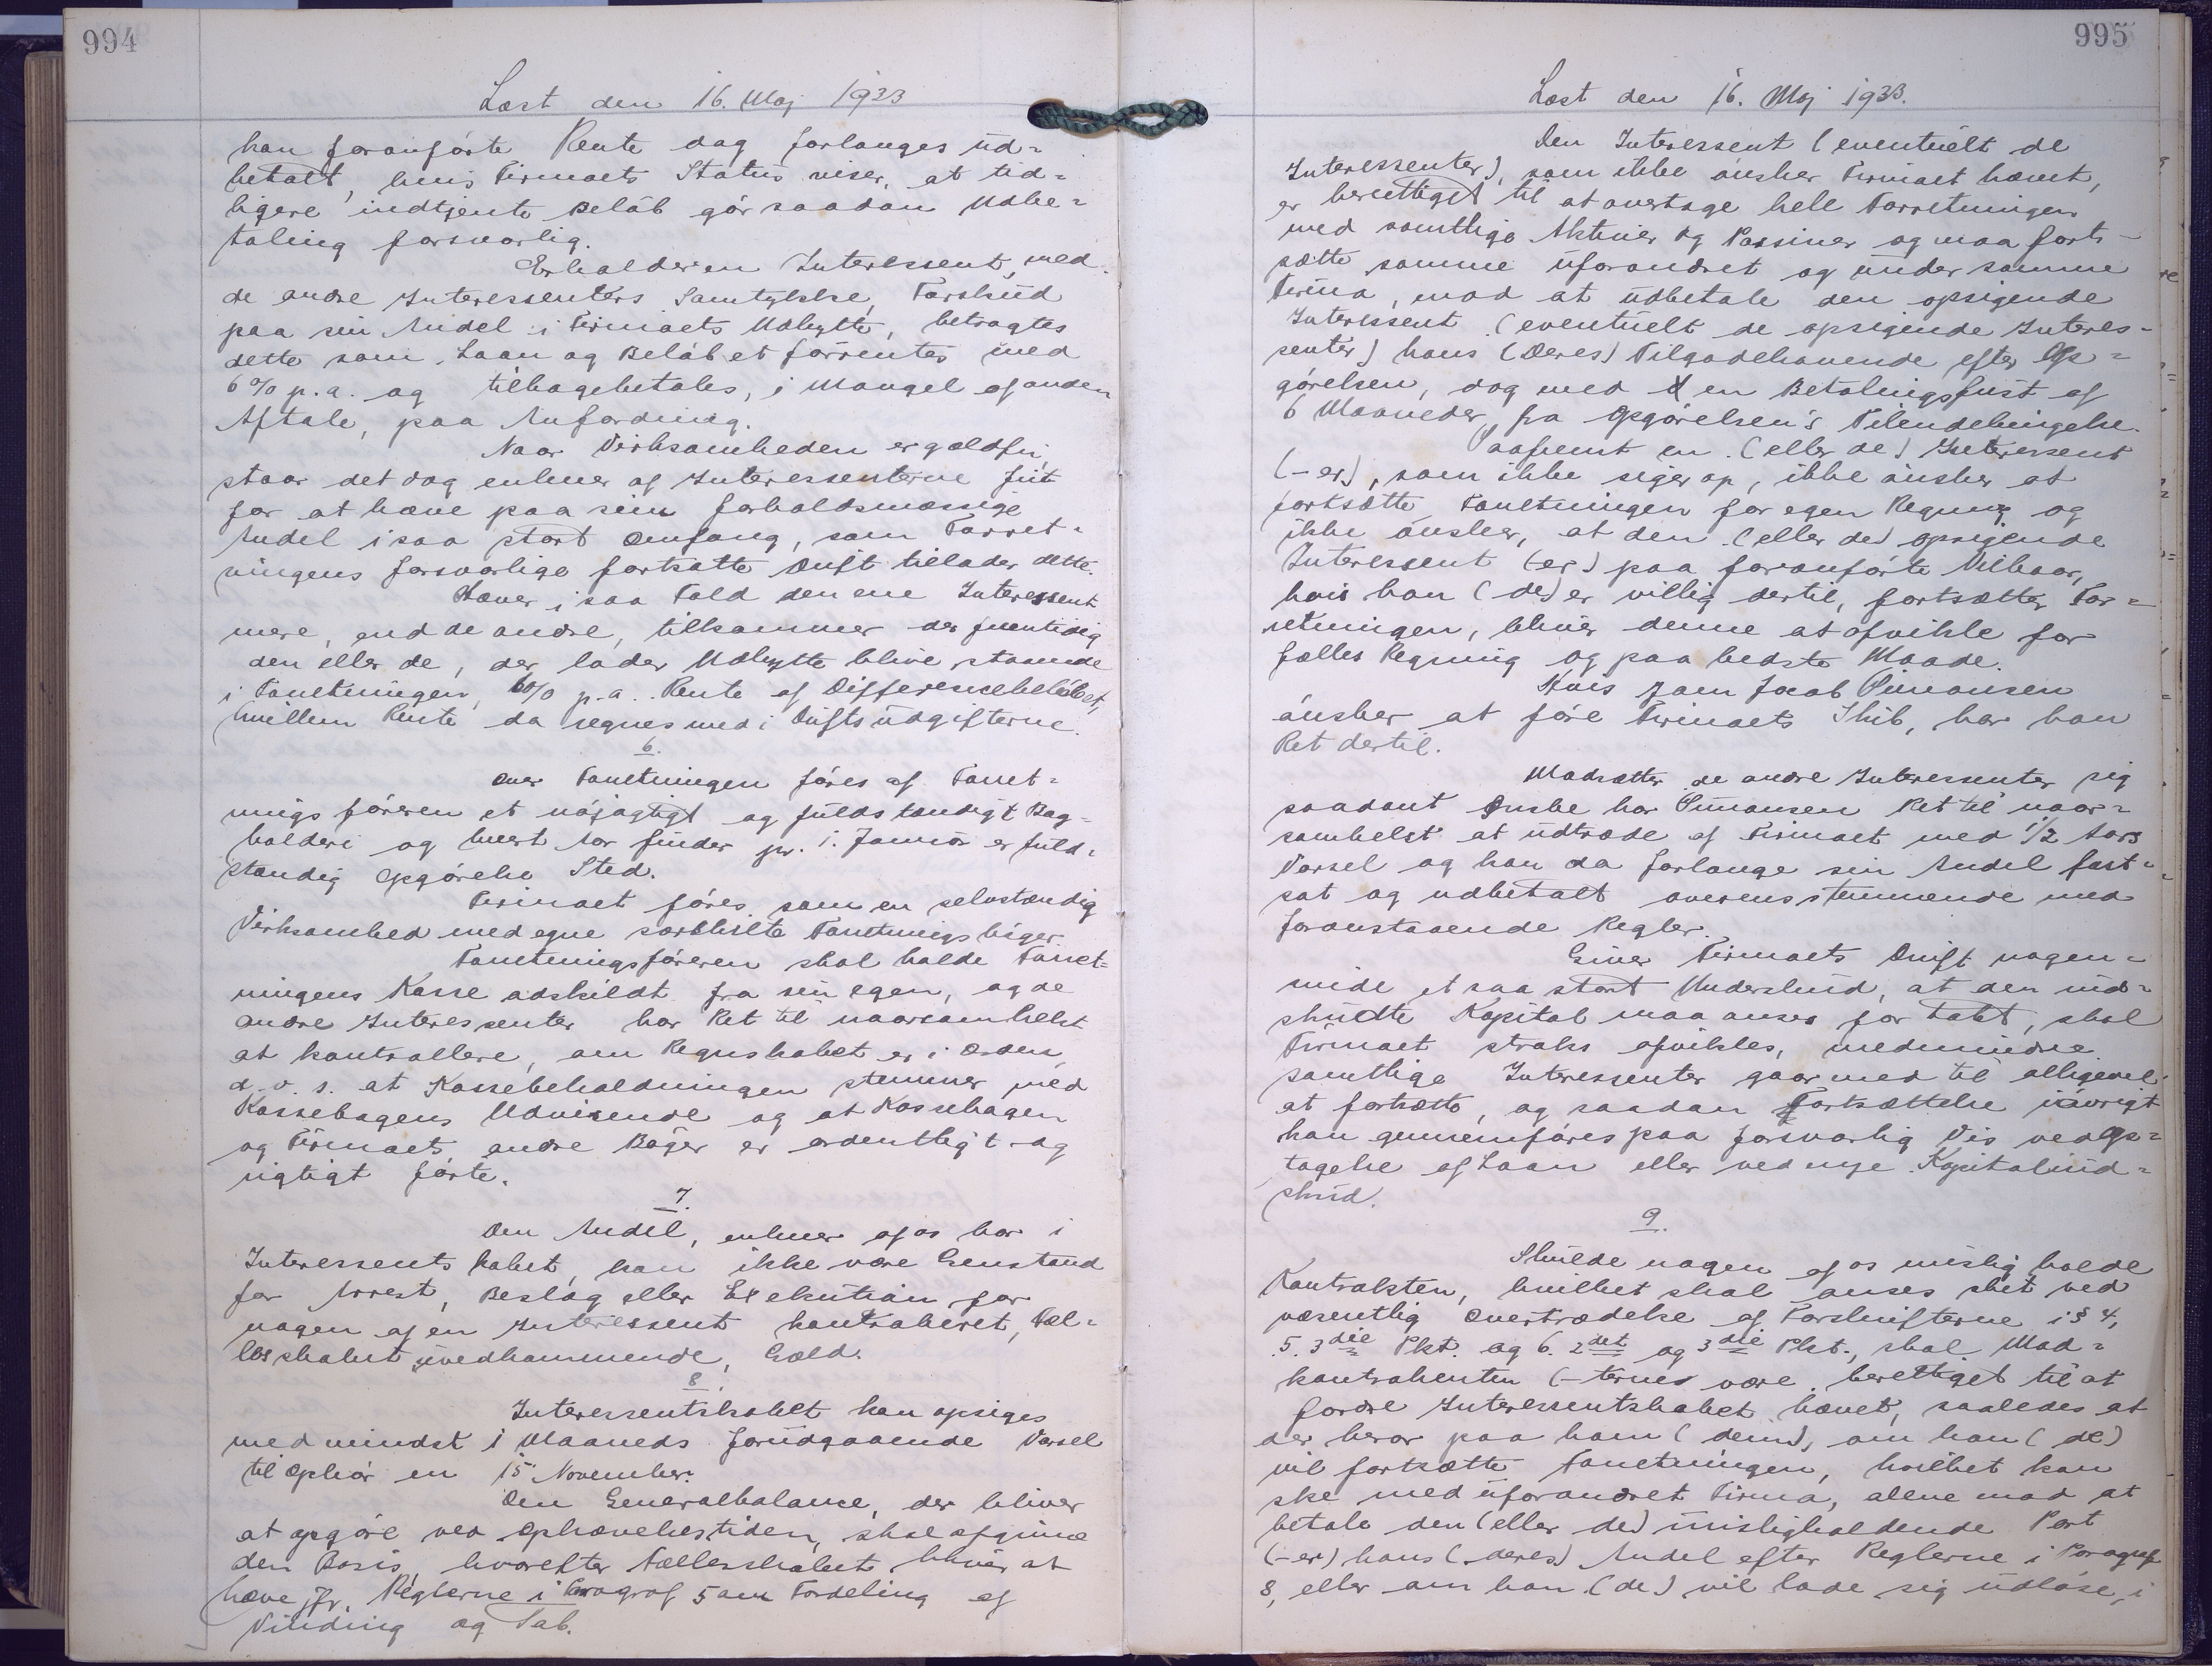 994
Læst den 16. Maj 1933
han foranførte Rente dag forlanges ud-
betalt, hvis Firmaets Status viser, at tid-
ligere indtjente Beløb gør saadan Udbe-
taling forsvarlig.
Erholder en Interessent, med
de andre Interessenters Samtykke, Forskud
paa sin Andel i Firmaets Udbytte, betragtes
dette som Laan og Beløbet forrentes med
6% p.a. og tilbagebetales, i Mangel af anden
Aftale, paa Anfordring.
Naar Virksomheden er gældfri,
staar det dog enhver af Interessenterne frit
for at hæve paa sin forholdsmæssige
Andel i saa stort Omfang, som Forret-
ningens forsvarlige fortsatte Drift tillader dette.
Hæver i saa Fald den ene Interessent
mere, end de andre, tilkommer der fremtidig
den eller de, der lader Udbytte blive staaende
i Forretningen, 6% p.a. Rente af Differencebeløbet,
hvilken Rente da regnes med i Driftsudgifterne.
6.
Over Forretningen føres af Forret-
nings føreren et nøjagtigt og fuldstændigt Bog-
holderi og hvert Aar finder pr. 1. Januar er fuld-
stændig Opgørelse Sted.
Firmaet føres som en selvstændig
Virksomhed med egne særskilte Forretningsbøger.
Forretningsføreren skal holde Forret-
ningens Kasse adskildt fra sin egen, og de
andre Interessenter har Ret til naarsomhelst
at kontrollere, om Regnskabet er i Orden,
d.v.s. at Kassebeholdningen stemmer med
Kassebogens Udvisende og at Kassebogen
og Firmaets andre Bøger er ordentligt og
rigtigt førte.
7.
Den Andel, enhver af os har i
Interessentskabet, kan ikke være Genstand
for Arrest, Beslag eller Exekution for
nogen af en Interessent kontraheret, Fæl-
lesskabet uvedkommende, Gæld.
8.
Interessentskabet kan opsiges
med mindst 1 Maaneds forudgaaende Varsel
til Ophør en 15 November.
Den Generalbalance, der bliver
at opgøre ved Ophævelsestiden, skal afgive
den Basis, hvorefter Fællesskabet bliver at
hæve jfr. Reglerne i Paragraf 5 om Fordeling af
Vinding og Tab.
995
Læst den 16. Maj 1933.
Den Interessent (eventuelt de
Interessenter), som ikke ønsker Firmaet hævet,
er berettiget til at overtage hele Forretningen
med samtlige Aktiver og Passiver og maa fort-
sætte samme uforandret og under samme
Firma, mod at udbetale den opsigende
Interessent (eventuelt de opsigende Interes-
senter) hans (Deres) Tilgodehavende efter Op-
gørelsen, dog med en Betalingsfrist af
6 Maaneder fra Opgørelsen's Tilendebringelse.
Saafremt en (eller de) Interessent
(-er), som ikke siger op, ikke ønsker at
fortsætte Forretningen for egen Regning og
ikke ønsker, at den (eller de) opsigende
Interessent (er) paa foranførte Vilkaar,
hvis han (de) er villig dertil, fortsætter For-
retningen, bliver denne at afvikle for
fælles Regning og paa bedste Maade.
Hvis Joen Jacob Simonsen
ønsker at føre Firmaets Skib, har han
Ret dertil.
Modsætter de andre Interessenter sig
saadant Ønske har Simonsen Ret til naar-
somhelst at udtræde af Firmaet med 1/2 Aars
Varsel og kan da forlange sin Andel fast-
sat og udbetalt overensstemmende med
foranstaaende Regler.
Giver Firmaets Drift nogen-
sinde et saa stort Underskud, at den ind-
skudte Kapital maa anses for tabt, skal
Firmaet straks afvikles, medmindre
samtlige Interessenter gaar med til alligevel
at fortsætte, og saadan Fortsættelse iøvrigt
kan gennemføres paa forsvarlig Vis ved Op-
tagelse af Laan eller ved nye Kapitalind-
skud.
9.
Skulde nogen af os mislig holde
Kontrakten, hvilket skal anses sket ved
væsentlig Overtrædelse af Forskrifterne i § 4,
5. 3die Pkt. og 6. 2det og 3die Pkt., skal Med-
kontrahenten (-terne) være berettiget til at
fordre Interessentskabet hævet, saaledes at
der beror paa ham (dem), om han (de)
vil fortsætte Forretningen, hvilket kan
ske med uforandret Firma, alene mod at
betale den (eller de) misligholdende Part
(-er) hans (deres) Andel efter Reglerne i Paragraf
8, eller om han (de) vil lade sig udløse, i